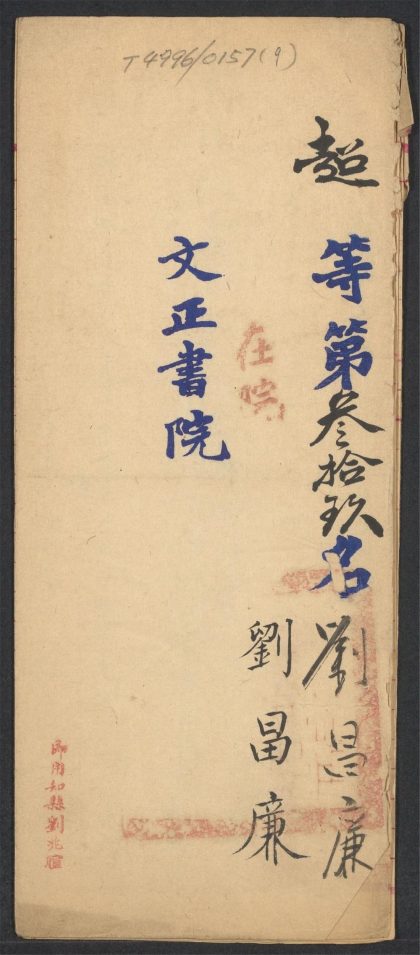 T4996/0157(9)
超等第叁拾玖名劉昌廉
在院
劉昌廉
文正書院
即用知縣劉兆暄